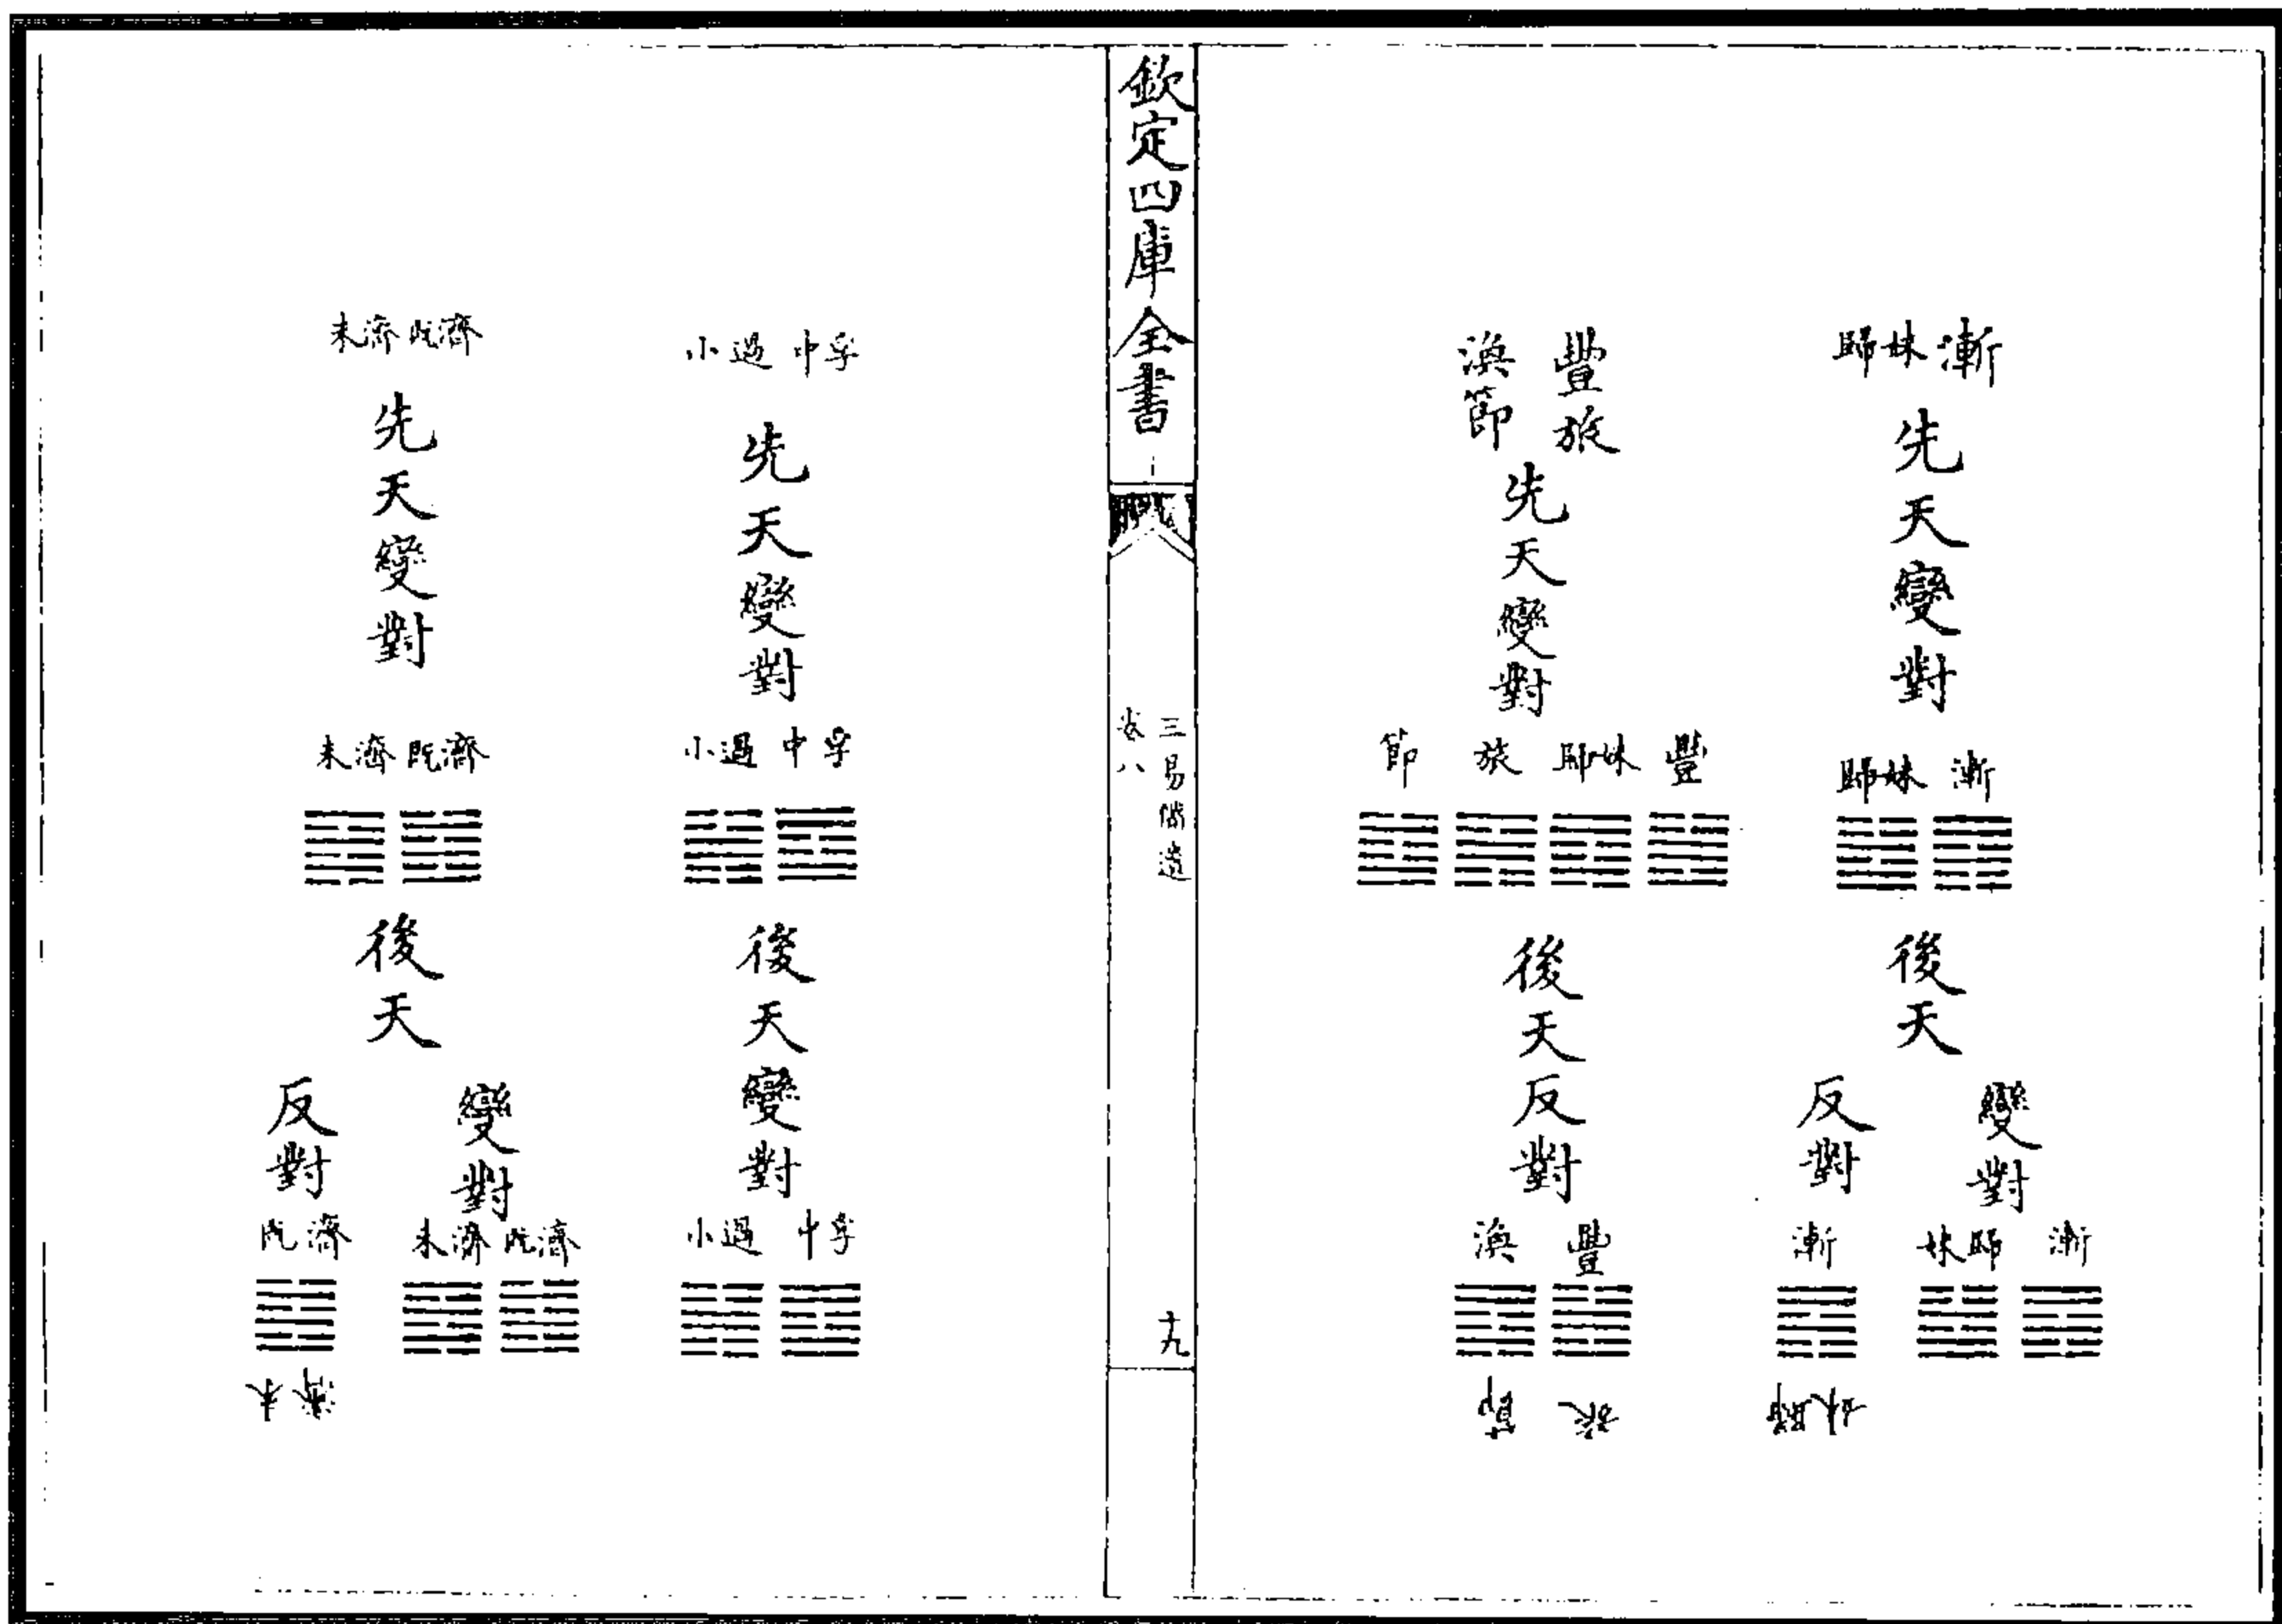 漸 歸妹
先天變對
漸 歸妹
後天
變對
漸 歸妹
反對
漸
歸妹
豐旅
渙節
先天變對
豐 歸妹 旅 節
後天反對
豐 渙
旅 節
欽定四庫全書
三易備遺
卷八
十九
中孚 小過
先天變對
中孚 小過
後天變對
中孚 小過
既濟 未濟
先天變對
既濟 未濟
後天
變對
既濟 未濟
反對
既濟
未濟